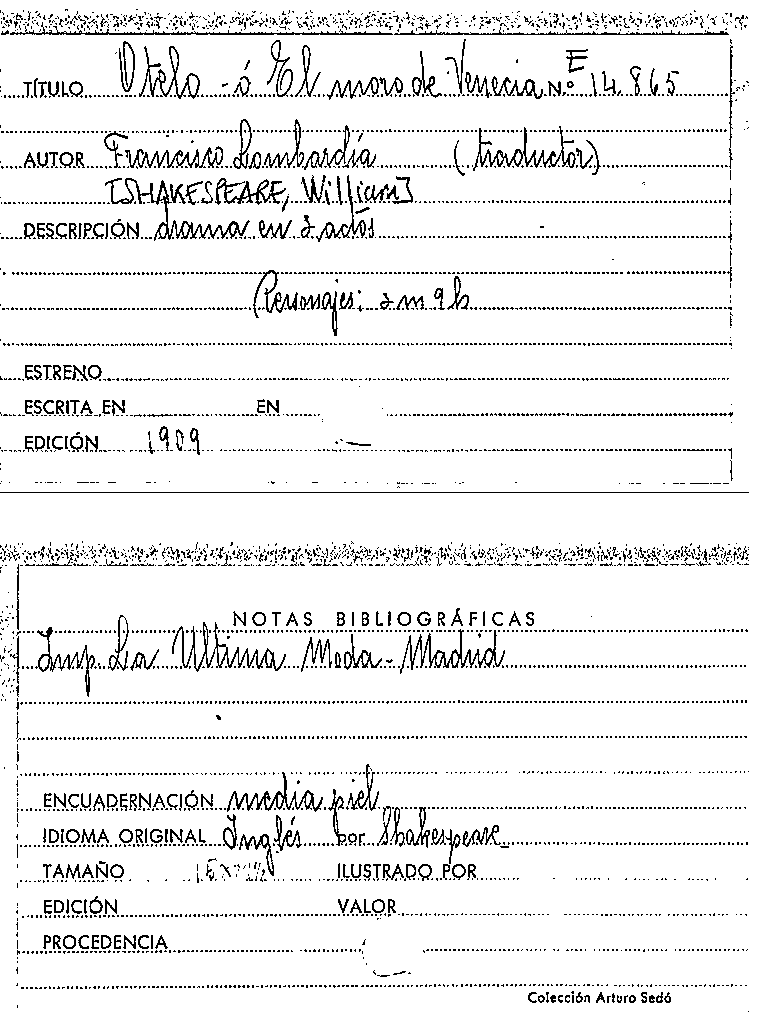 TÍTULO Otelo - ó El moro de Venecia N.º E 14.865
AUTOR Francisco Lombardía (traductor)
[SHAKESPEARE, William]
DESCRIPCIÓN drama en 2 actos
Personajes: 2 m 9 h
ESTRENO
ESCRITA EN EN
EDICIÓN 1909
NOTAS BIBLIOGRÁFICAS
Imp. La Ultima Moda - Madrid
ENCUADERNACIÓN media piel
IDIOMA ORIGINAL Inglés por Shakespeare
TAMAÑO ILUSTRADO POR
EDICIÓN VALOR
PROCEDENCIA
Colección Arturo Sedó